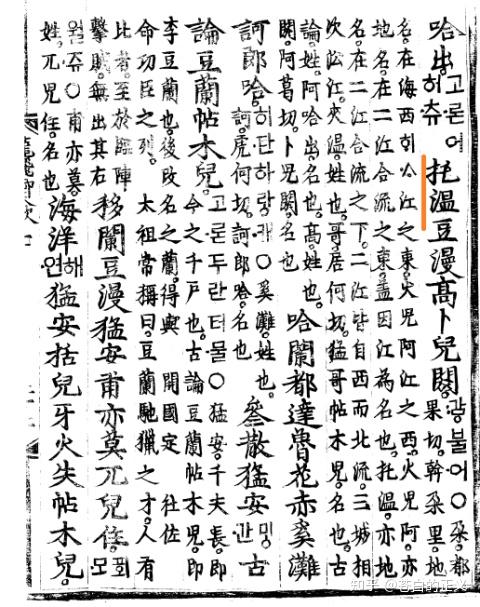 哈出 고론어
허츄 托溫豆漫高卜兒閼 불어○朶都
果切斡朶里地
名在海西江之東火兒阿江之西火兒阿亦
地名在二江合流之東盖因江爲名也托溫亦地
名在二江合流之下二江皆自西而北流三城相
次松江夾溫姓也哥居何切猛哥帖木兒名也古
論姓阿哈出名也高姓也
閼阿葛切卜兒閼名也 哈闌都達魯花赤奚灘
訶郞哈 히탄하랑캐○奚灘姓也
訶虎何切訶郞哈名也 參散猛安 밍간 古
論豆蘭帖木兒 고론두란터물○猛安千夫長即
今之千戶也古論豆蘭帖木兒即
李豆蘭也後改名之蘭得與 開國定社佐
命功臣之列 太祖常稱曰豆蘭馳獵之才人有
比者至於臨陣
擊賊無出其右 移闌豆漫猛安甫亦莫兀兒住
월쥬○甫亦莫
姓兀兒住名也 海洋 해연 猛安括兒牙火失帖木兒
知乎 @苍白的正义